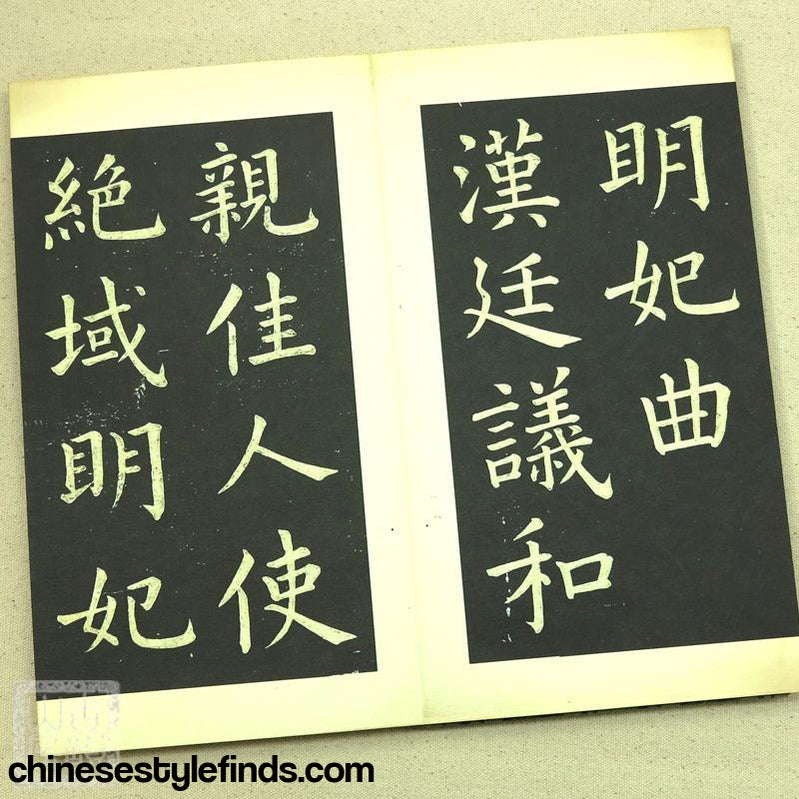 明妃曲
漢廷議和
親佳人使
絶域明妃
chinesestylefinds.com